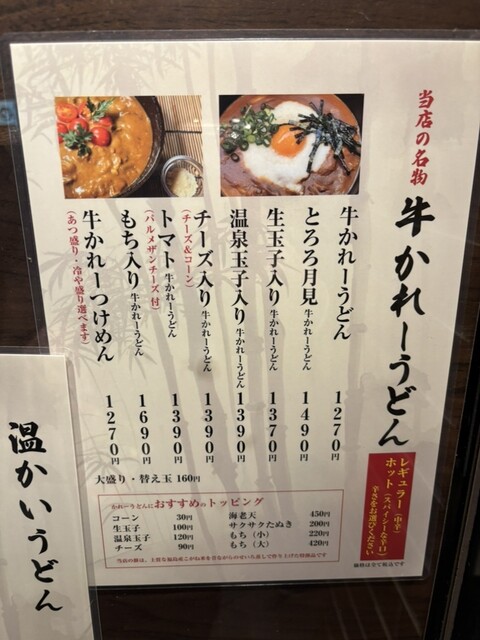 当店の名物
牛かれーうどん
レギュラー（中辛）
ホット（スパイシーな辛口）
辛さをお選びください
牛かれーうどん 1270円
とろろ月見 牛かれーうどん 1490円
生玉子入り 牛かれーうどん 1370円
温泉玉子入り 牛かれーうどん 1390円
チーズ入り 牛かれーうどん 1390円
（チーズ&コーン）
トマト 牛かれーうどん 1390円
（パルメザンチーズ付）
もち入り 牛かれーうどん 1690円
牛かれーつけめん 1270円
（あつ盛り・冷や盛り選べます）
大盛り・替え玉 160円
かれーうどんにおすすめのトッピング
コーン 30円
生玉子 100円
温泉玉子 120円
チーズ 90円
海老天 450円
サクサクたぬき 200円
もち（小） 220円
もち（大） 420円
価格は全て税込です
温かいうどん